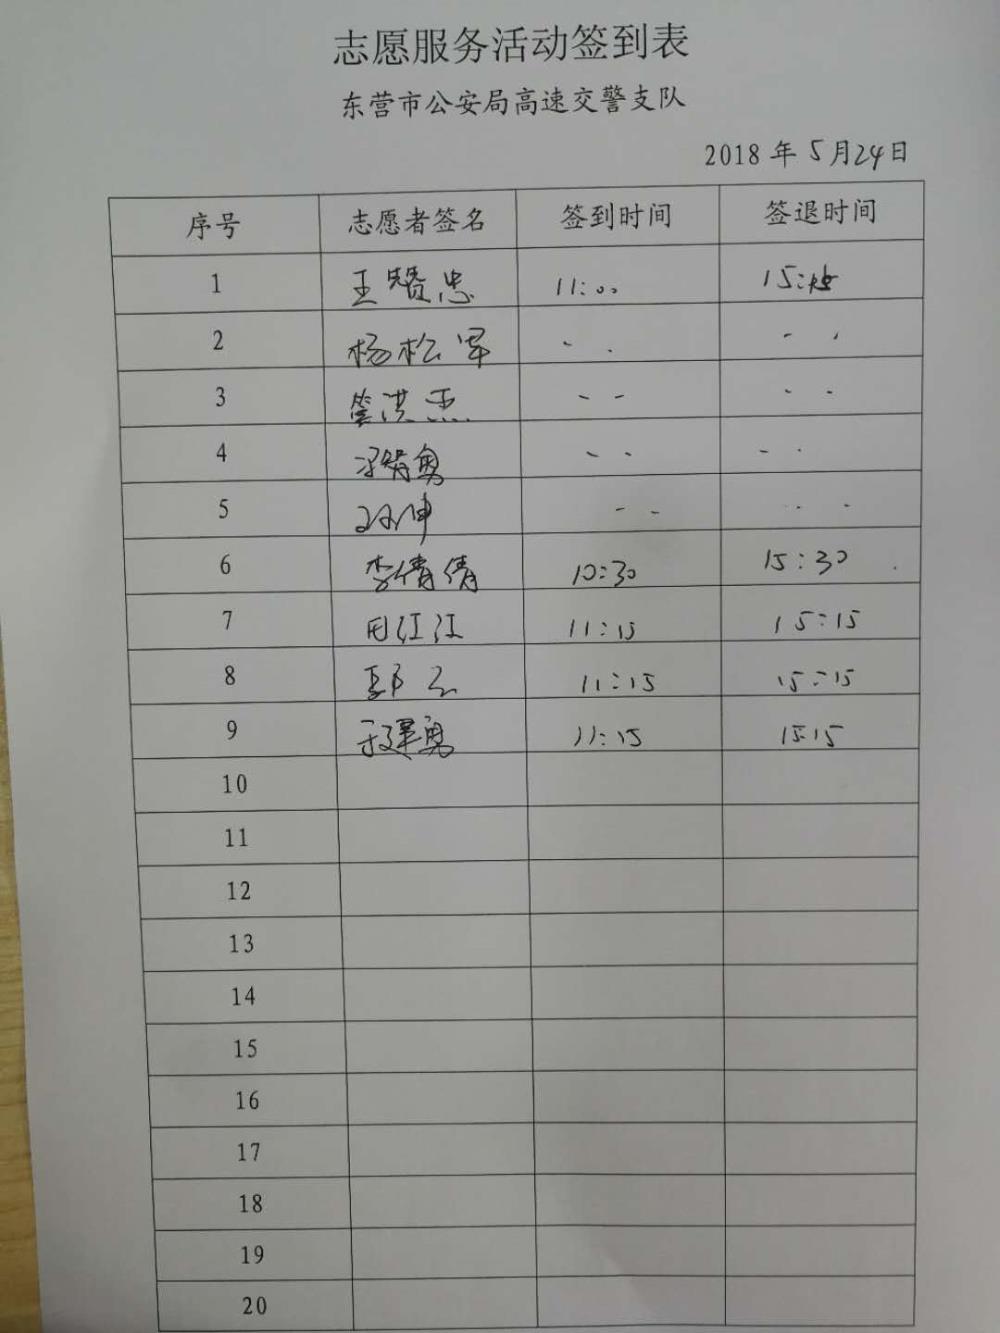 志愿服务活动签到表
东营市公安局高速交警支队
2018 年 5月24日
序号 志愿者签名 签到时间 签退时间
1 王赞忠 11:00 15:
2 杨松军
3 洪杰
4 勇
5 孙坤
6 李倩倩 10:30 15:30
7 田江江 11:15 15:15
8 郭 11:15 15:15
9 建勇 11:15 15:15
10
11
12
13
14
15
16
17
18
19
20